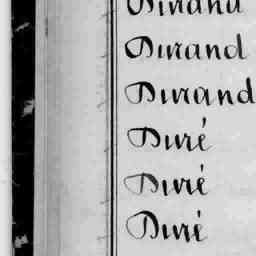 Durand
Durand
Durand
Duré
Duré
Duré